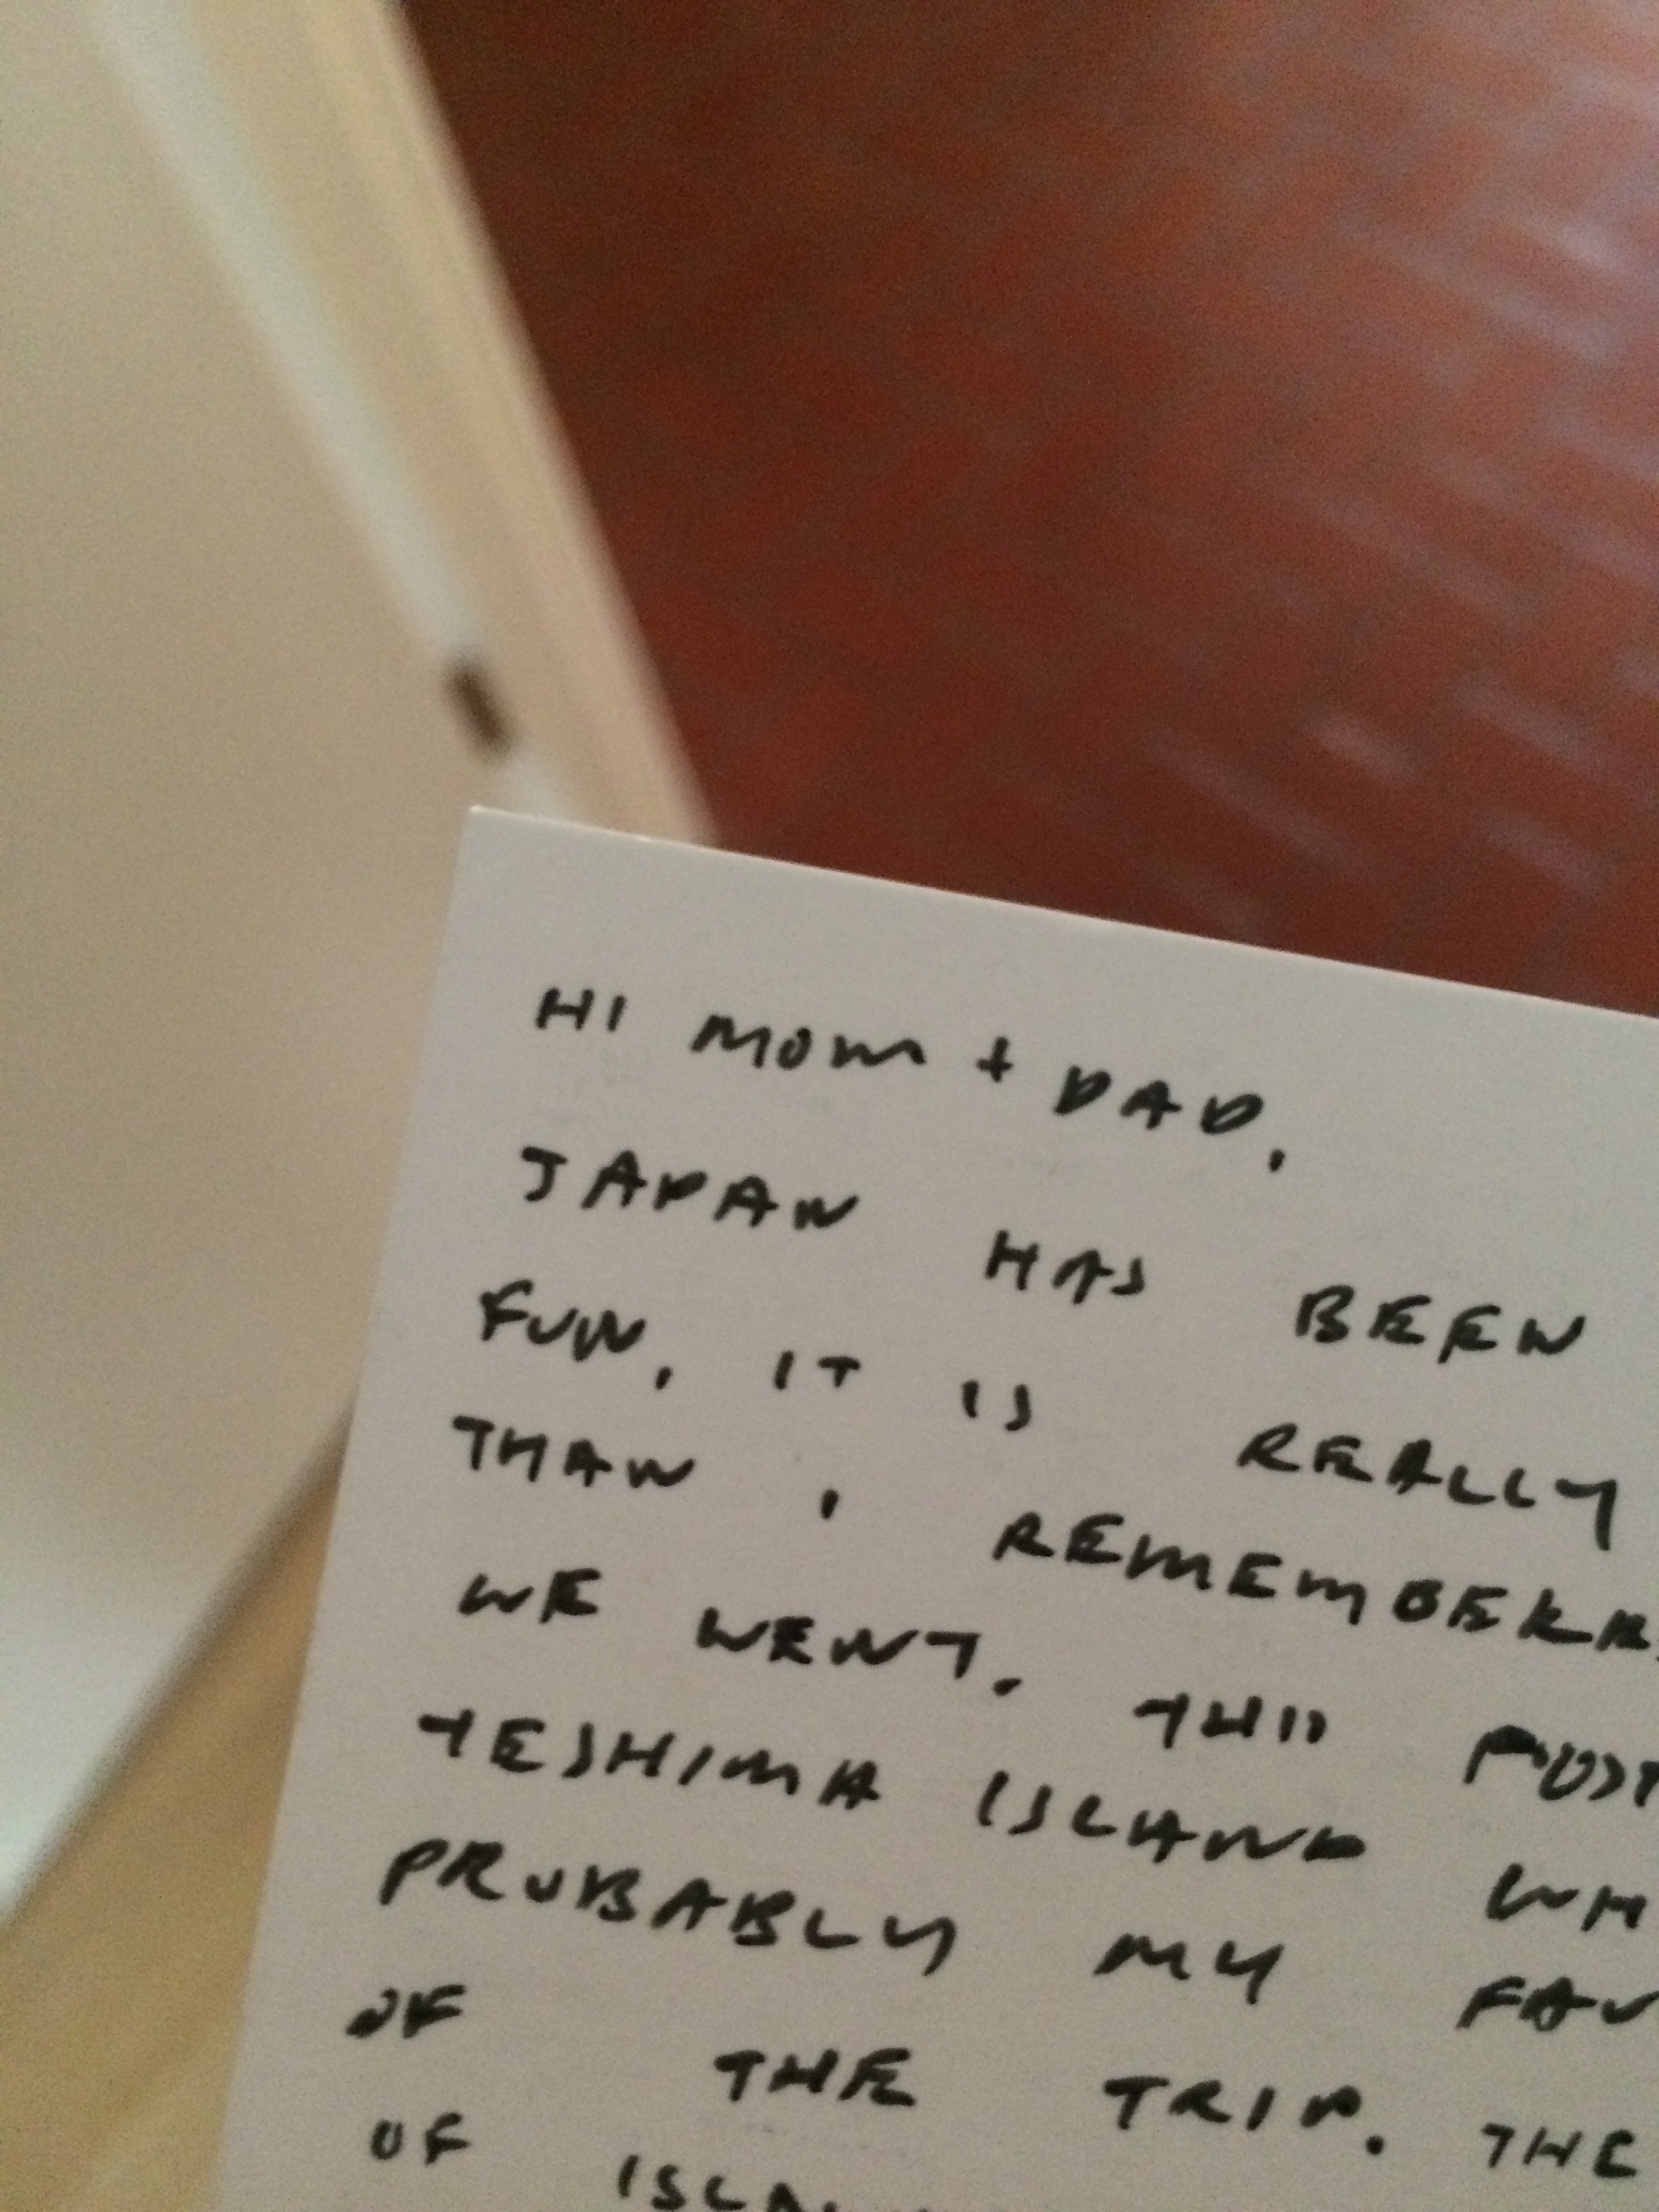 HI MOM + DAD,
JAPAN HAS BEEN
FUN, IT IS REALLY
THAN I REMEMBER
WE WENT. THIS POST
TESHIMA ISLAND WH
PROBABLY MY FAV
OF THE TRIP. THE
OF ISLA